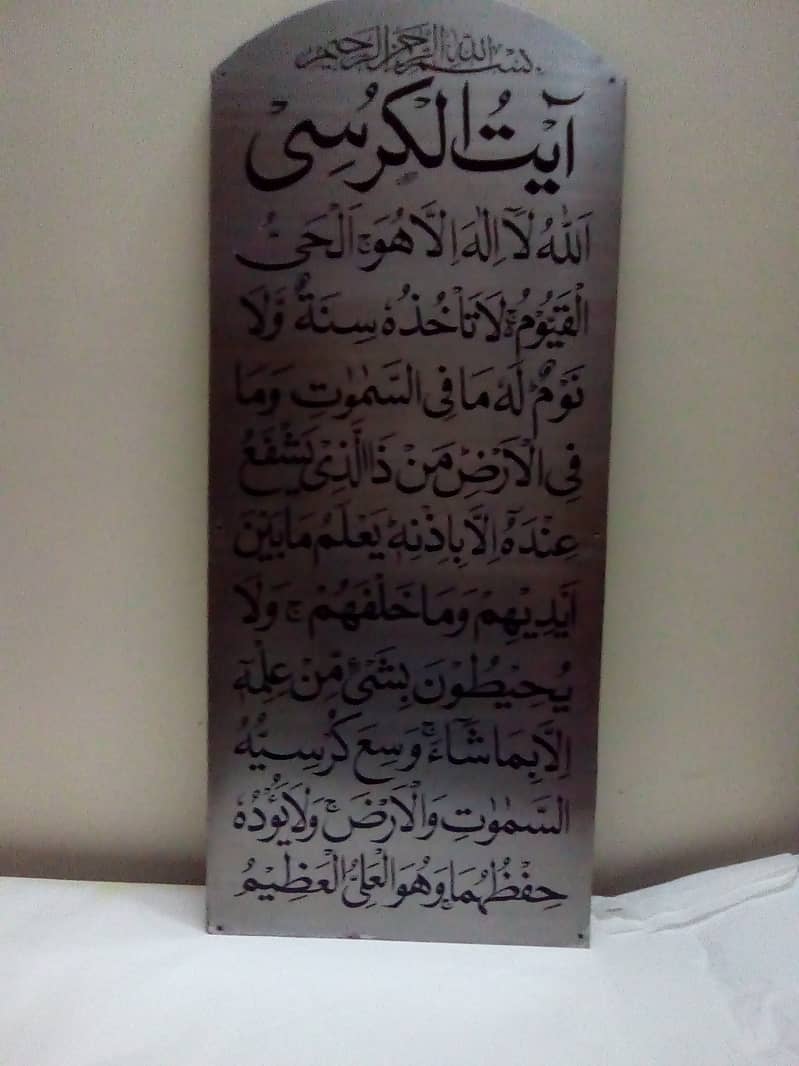 بسم الله الرحمن الرحيم
آیتُ الْکُرْسِیْ
اَللّٰهُ لَآ اِلٰهَ اِلَّا هُوَ ۚ اَلْحَیُّ
الْقَیُّوْمُ ۚ لَا تَاْخُذُهٗ سِنَةٌ وَّلَا
نَوْمٌ ؕ لَهٗ مَا فِی السَّمٰوٰتِ وَمَا
فِی الْاَرْضِ ؕ مَنْ ذَا الَّذِیْ یَشْفَعُ
عِنْدَهٗۤ اِلَّا بِاِذْنِهٖ ؕ یَعْلَمُ مَا بَیْنَ
اَیْدِیْهِمْ وَمَا خَلْفَهُمْ ۚ وَلَا
یُحِیْطُوْنَ بِشَیْءٍ مِّنْ عِلْمِهٖۤ
اِلَّا بِمَا شَآءَ ۚ وَسِعَ کُرْسِیُّهُ
السَّمٰوٰتِ وَالْاَرْضَ ۚ وَلَا یَؤُدُهٗ
حِفْظُهُمَا ۚ وَهُوَ الْعَلِیُّ الْعَظِیْمُ